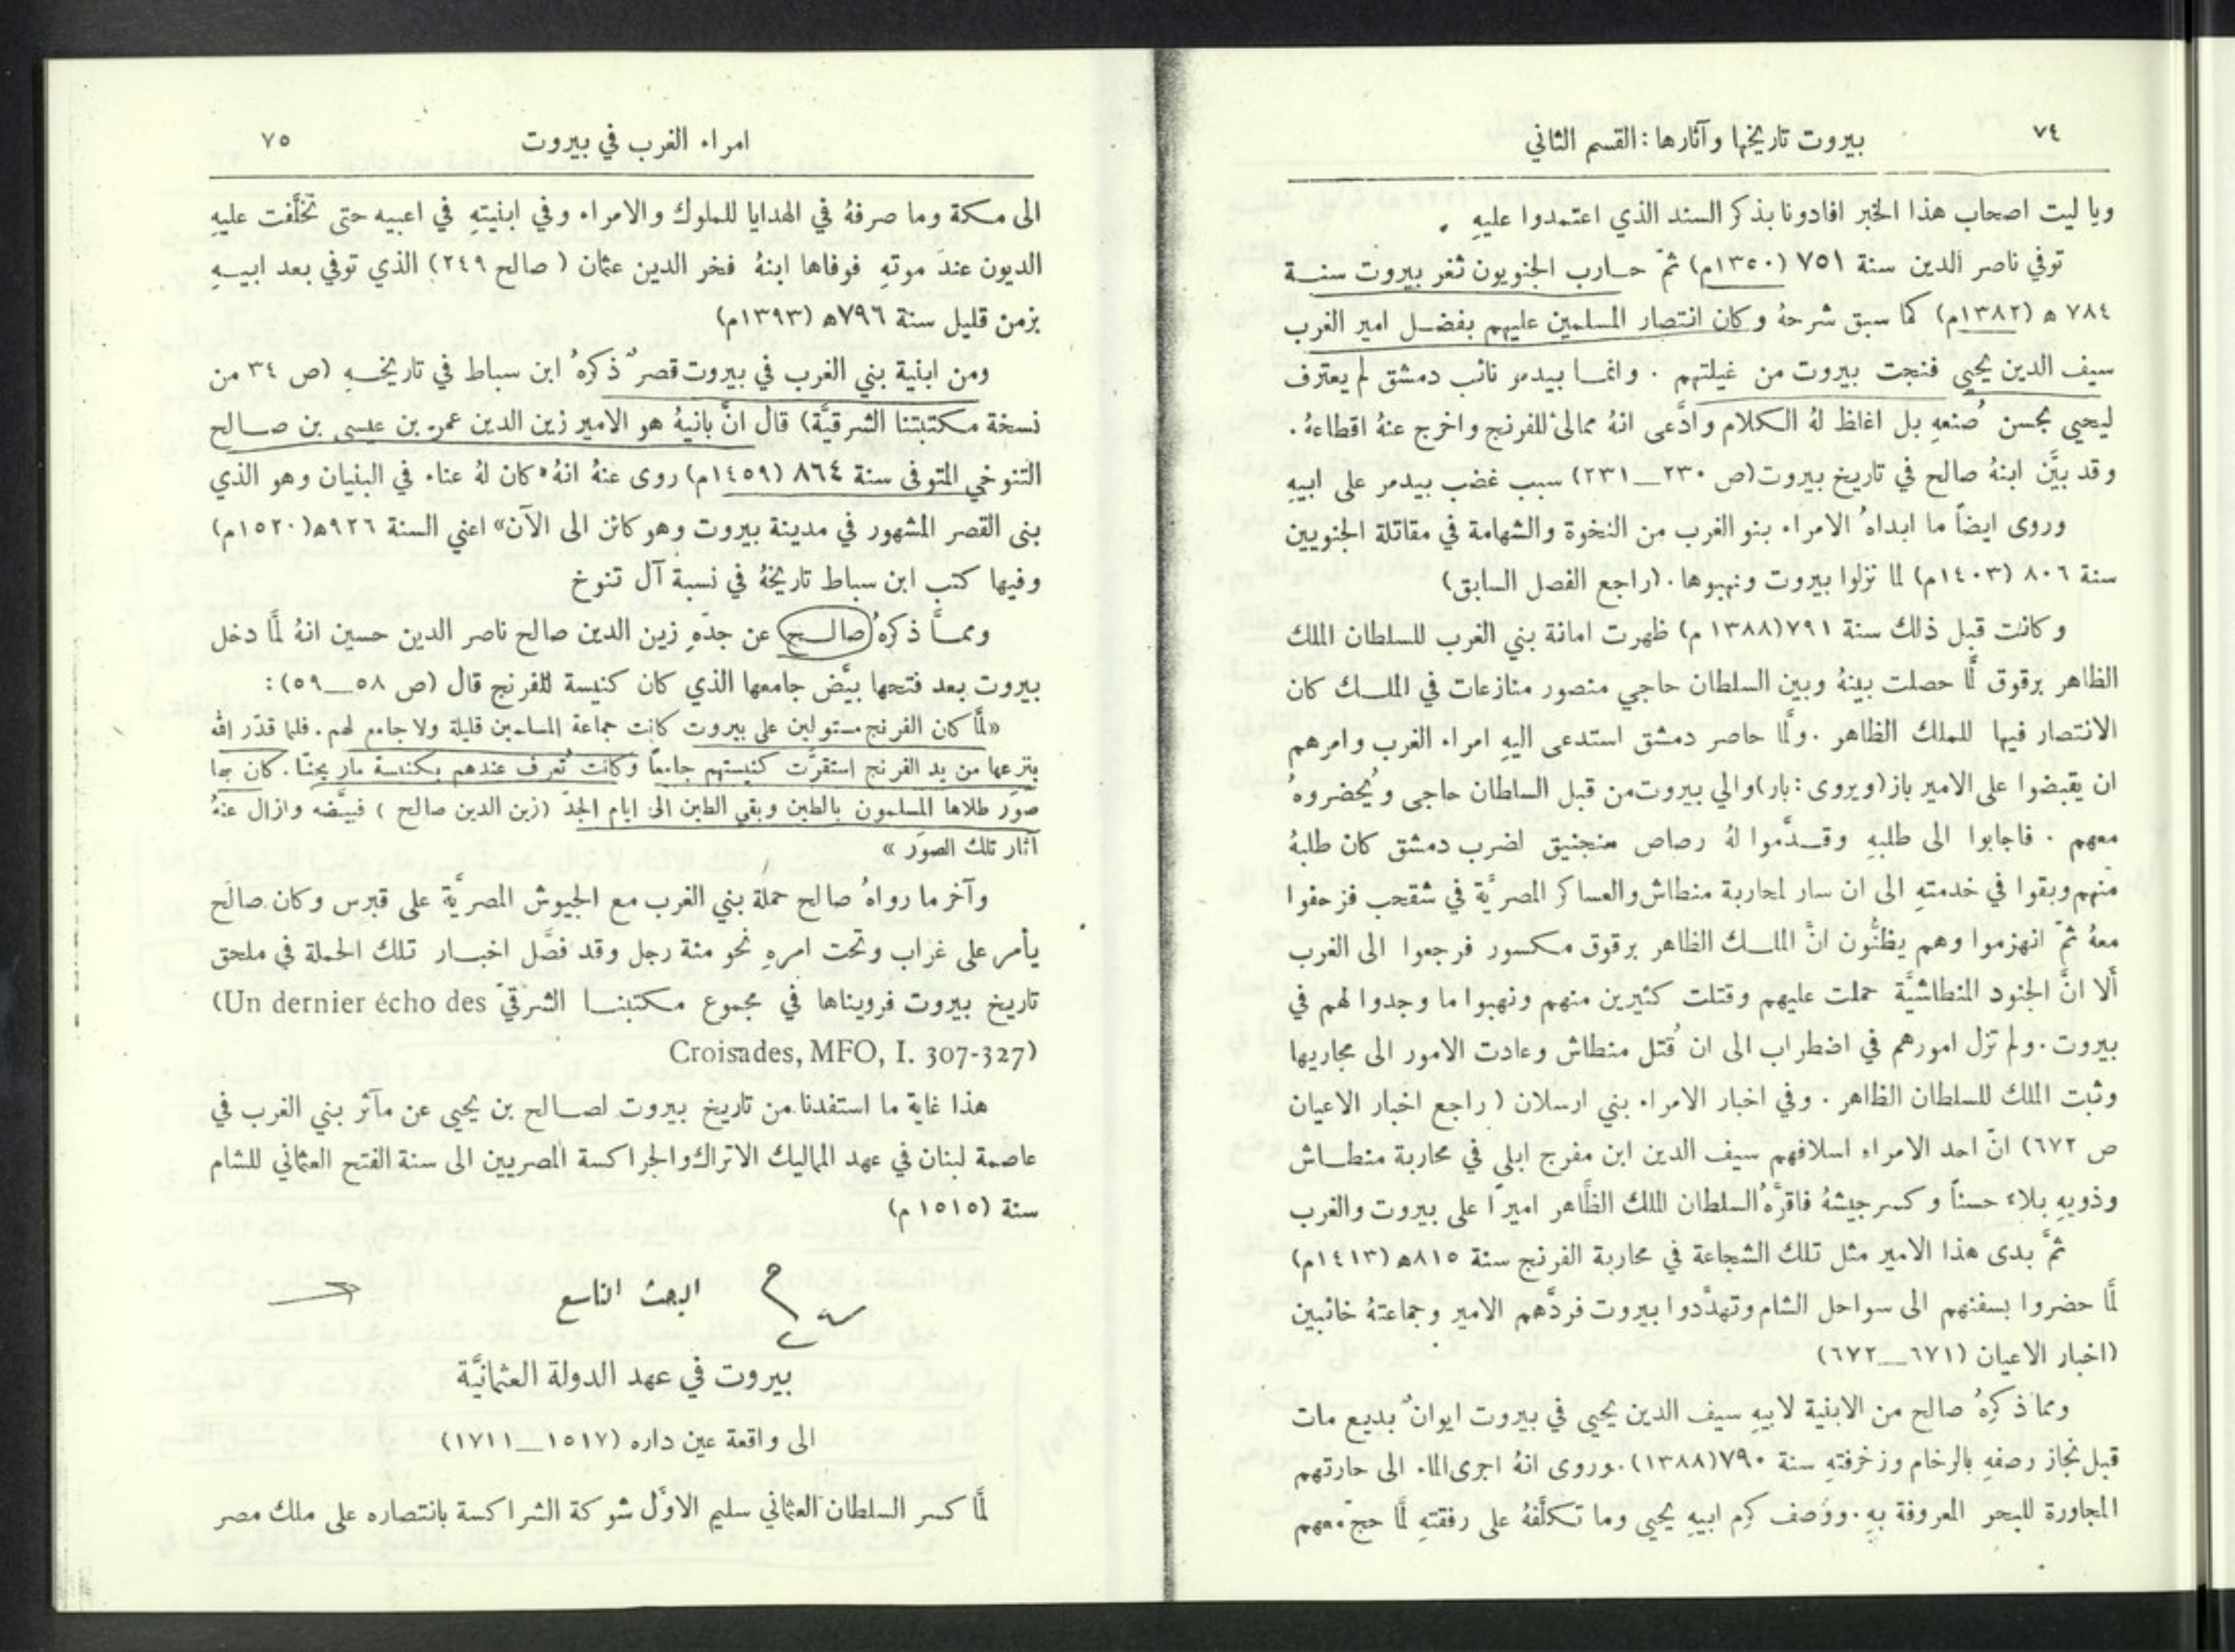 ٧٤
بيروت تاريخها وآثارها : القسم الثاني
ويا ليت اصحاب هذا الخبر افادونا بذكر السند الذي اعتمدوا عليهِ .
توفي ناصر الدين سنة ٧٥١ (١٣٥٠م) ثمّ حارب الجنويون ثغر بيروت سنة
٧٨٤ ه (١٣٨٢م) كما سبق شرحهُ وكان انتصار المسلمين عليهم بفضل امير الغرب
سيف الدين يحيى فنجت بيروت من غيلتهم . وانما بيدمر نائب دمشق لم يعترف
ليحيى بحسن صُنعهِ بل اغاظ لهُ الكلام وادَّعى انهُ ممالئ للفرنج واخرج عنهُ اقطاعهُ .
وقد بيَّن ابنهُ صالح في تاريخ بيروت (ص ٢٣٠_٢٣١) سبب غضب بيدمر على ابيهِ
وروى ايضاً ما ابداهُ الامراء بنو الغرب من النخوة والشهامة في مقاتلة الجنويين
سنة ٨٠٦ (١٤٠٣م) لما نزلوا بيروت ونهبوها . (راجع الفصل السابق)
وكانت قبل ذلك سنة ٧٩١ (١٣٨٨ م) ظهرت امانة بني الغرب للسلطان الملك
الظاهر برقوق لمَّا حصلت بينهُ وبين السلطان حاجي منصور منازعات في الملك كان
الانتصار فيها للملك الظاهر . ولمَّا حاصر دمشق استدعى اليهِ امراء الغرب وامرهم
ان يقبضوا على الامير باز (ويروى : بار) والي بيروت من قبل السلطان حاجي ويُحضروهُ
معهم . فاجابوا الى طلبهِ وقدَّموا لهُ رصاص منجنيق لضرب دمشق كان طلبهُ
منهم وبقوا في خدمتهِ الى ان سار لمحاربة منطاش والعساكر المصريَّة في شقحب فزحفوا
معهُ ثمّ انهزموا وهم يظنُّون انَّ الملك الظاهر برقوق مكسور فرجعوا الى الغرب
ألا انَّ الجنود المنطاشيَّة حملت عليهم وقتلت كثيرين منهم ونهبوا ما وجدوا لهم في
بيروت . ولم تزل امورهم في اضطراب الى ان قُتل منطاش وعادت الامور الى مجاريها
وثبت الملك للسلطان الظاهر . وفي اخبار الامراء بني ارسلان (راجع اخبار الاعيان
ص ٦٧٢) انّ احد الامراء اسلافهم سيف الدين ابن مفرج ابلى في محاربة منطاش
وذويهِ بلاء حسناً وكسر جيشهُ فاقرَّهُ السلطان الملك الظَّاهر اميرًا على بيروت والغرب
ثمَّ بدى هذا الامير مثل تلك الشجاعة في محاربة الفرنج سنة ٨١٥ه (١٤١٣م)
لمَّا حضروا بسفنهم الى سواحل الشام وتهدَّدوا بيروت فردَّهم الامير وجماعتهُ خائبين
(اخبار الاعيان (٦٧١_٦٧٢)
ومما ذكرهُ صالح من الابنية لابيهِ سيف الدين يحيى في بيروت ايوانٌ بديع مات
قبل نجاز رصفهِ بالرخام وزخرفتهِ سنة ٧٩٠ (١٣٨٨) . وروى انهُ اجرى الماء الى حارتهم
المجاورة للبحر المعروفة بهِ . ووَصف كرم ابيهِ يحيى وما تكلَّفهُ على رفقتهِ لمَّا حجّ معهم
امراء الغرب في بيروت
٧٥
الى مكة وما صرفهُ في الهدايا للملوك والامراء وفي ابنيتهِ في اعبيه حتى تخلَّفت عليهِ
الديون عندَ موتهِ فوفاها ابنهُ فخر الدين عثمان (صالح ٢٤٩) الذي توفي بعد ابيهِ
بزمن قليل سنة ٧٩٦ه (١٣٩٣م)
ومن ابنية بني الغرب في بيروت قصرٌ ذكرهُ ابن سباط في تاريخهِ (ص ٣٤ من
نسخة مكتبتنا الشرقيَّة) قال انَّ بانيهُ هو الامير زين الدين عمر بن عيسى بن صالح
التنوخي المتوفى سنة ٨٦٤ (١٤٥٩م) روى عنهُ انهُ «كان لهُ عناء في البنيان وهو الذي
بنى القصر المشهور في مدينة بيروت وهو كائن الى الآن» اعني السنة ٩٢٦ه (١٥٢٠م)
وفيها كتب ابن سباط تاريخهُ في نسبة آل تنوخ
وممَّا ذكرهُ صالح عن جدّهِ زين الدين صالح ناصر الدين حسين انهُ لمَّا دخل
بيروت بعد فتحها بيَّض جامعها الذي كان كنيسة للفرنج قال (ص ٥٨_٥٩) :
«لمَّا كان الفرنج مستولين على بيروت كانت جماعة المسلمين قليلة ولا جامع لهم . فلما قدّر الله
بنزعها من يد الفرنج استقرَّت كنيستهم جامعاً وكانت تُعرف عندهم بكنيسة مار يحنَّا . كان بها
صوَر طلاها المسلمون بالطين وبقي الطين الى ايام الجدّ (زين الدين صالح) فبيَّضه وازال عنهُ
آثار تلك الصوَر»
وآخر ما رواهُ صالح حملة بني الغرب مع الجيوش المصريَّة على قبرس وكان صالح
يأمر على غراب وتحت امرهِ نحو مئة رجل وقد فصَّل اخبار تلك الحملة في ملحق
تاريخ بيروت فرويناها في مجموع مكتبنا الشرقيّ (Un dernier écho des
Croisades, MFO, I. 307-327)
هذا غاية ما استفدنا من تاريخ بيروت لصالح بن يحيى عن مآثر بني الغرب في
عاصمة لبنان في عهد المماليك الاتراك والجراكسة المصريين الى سنة الفتح العثماني للشام
سنة (١٥١٥ م)
البحث التاسع
بيروت في عهد الدولة العثمانيَّة
الى واقعة عين داره (١٥١٧_١٧١١)
لمَّا كسر السلطان العثماني سليم الاوَّل شوكة الشراكسة بانتصاره على ملك مصر